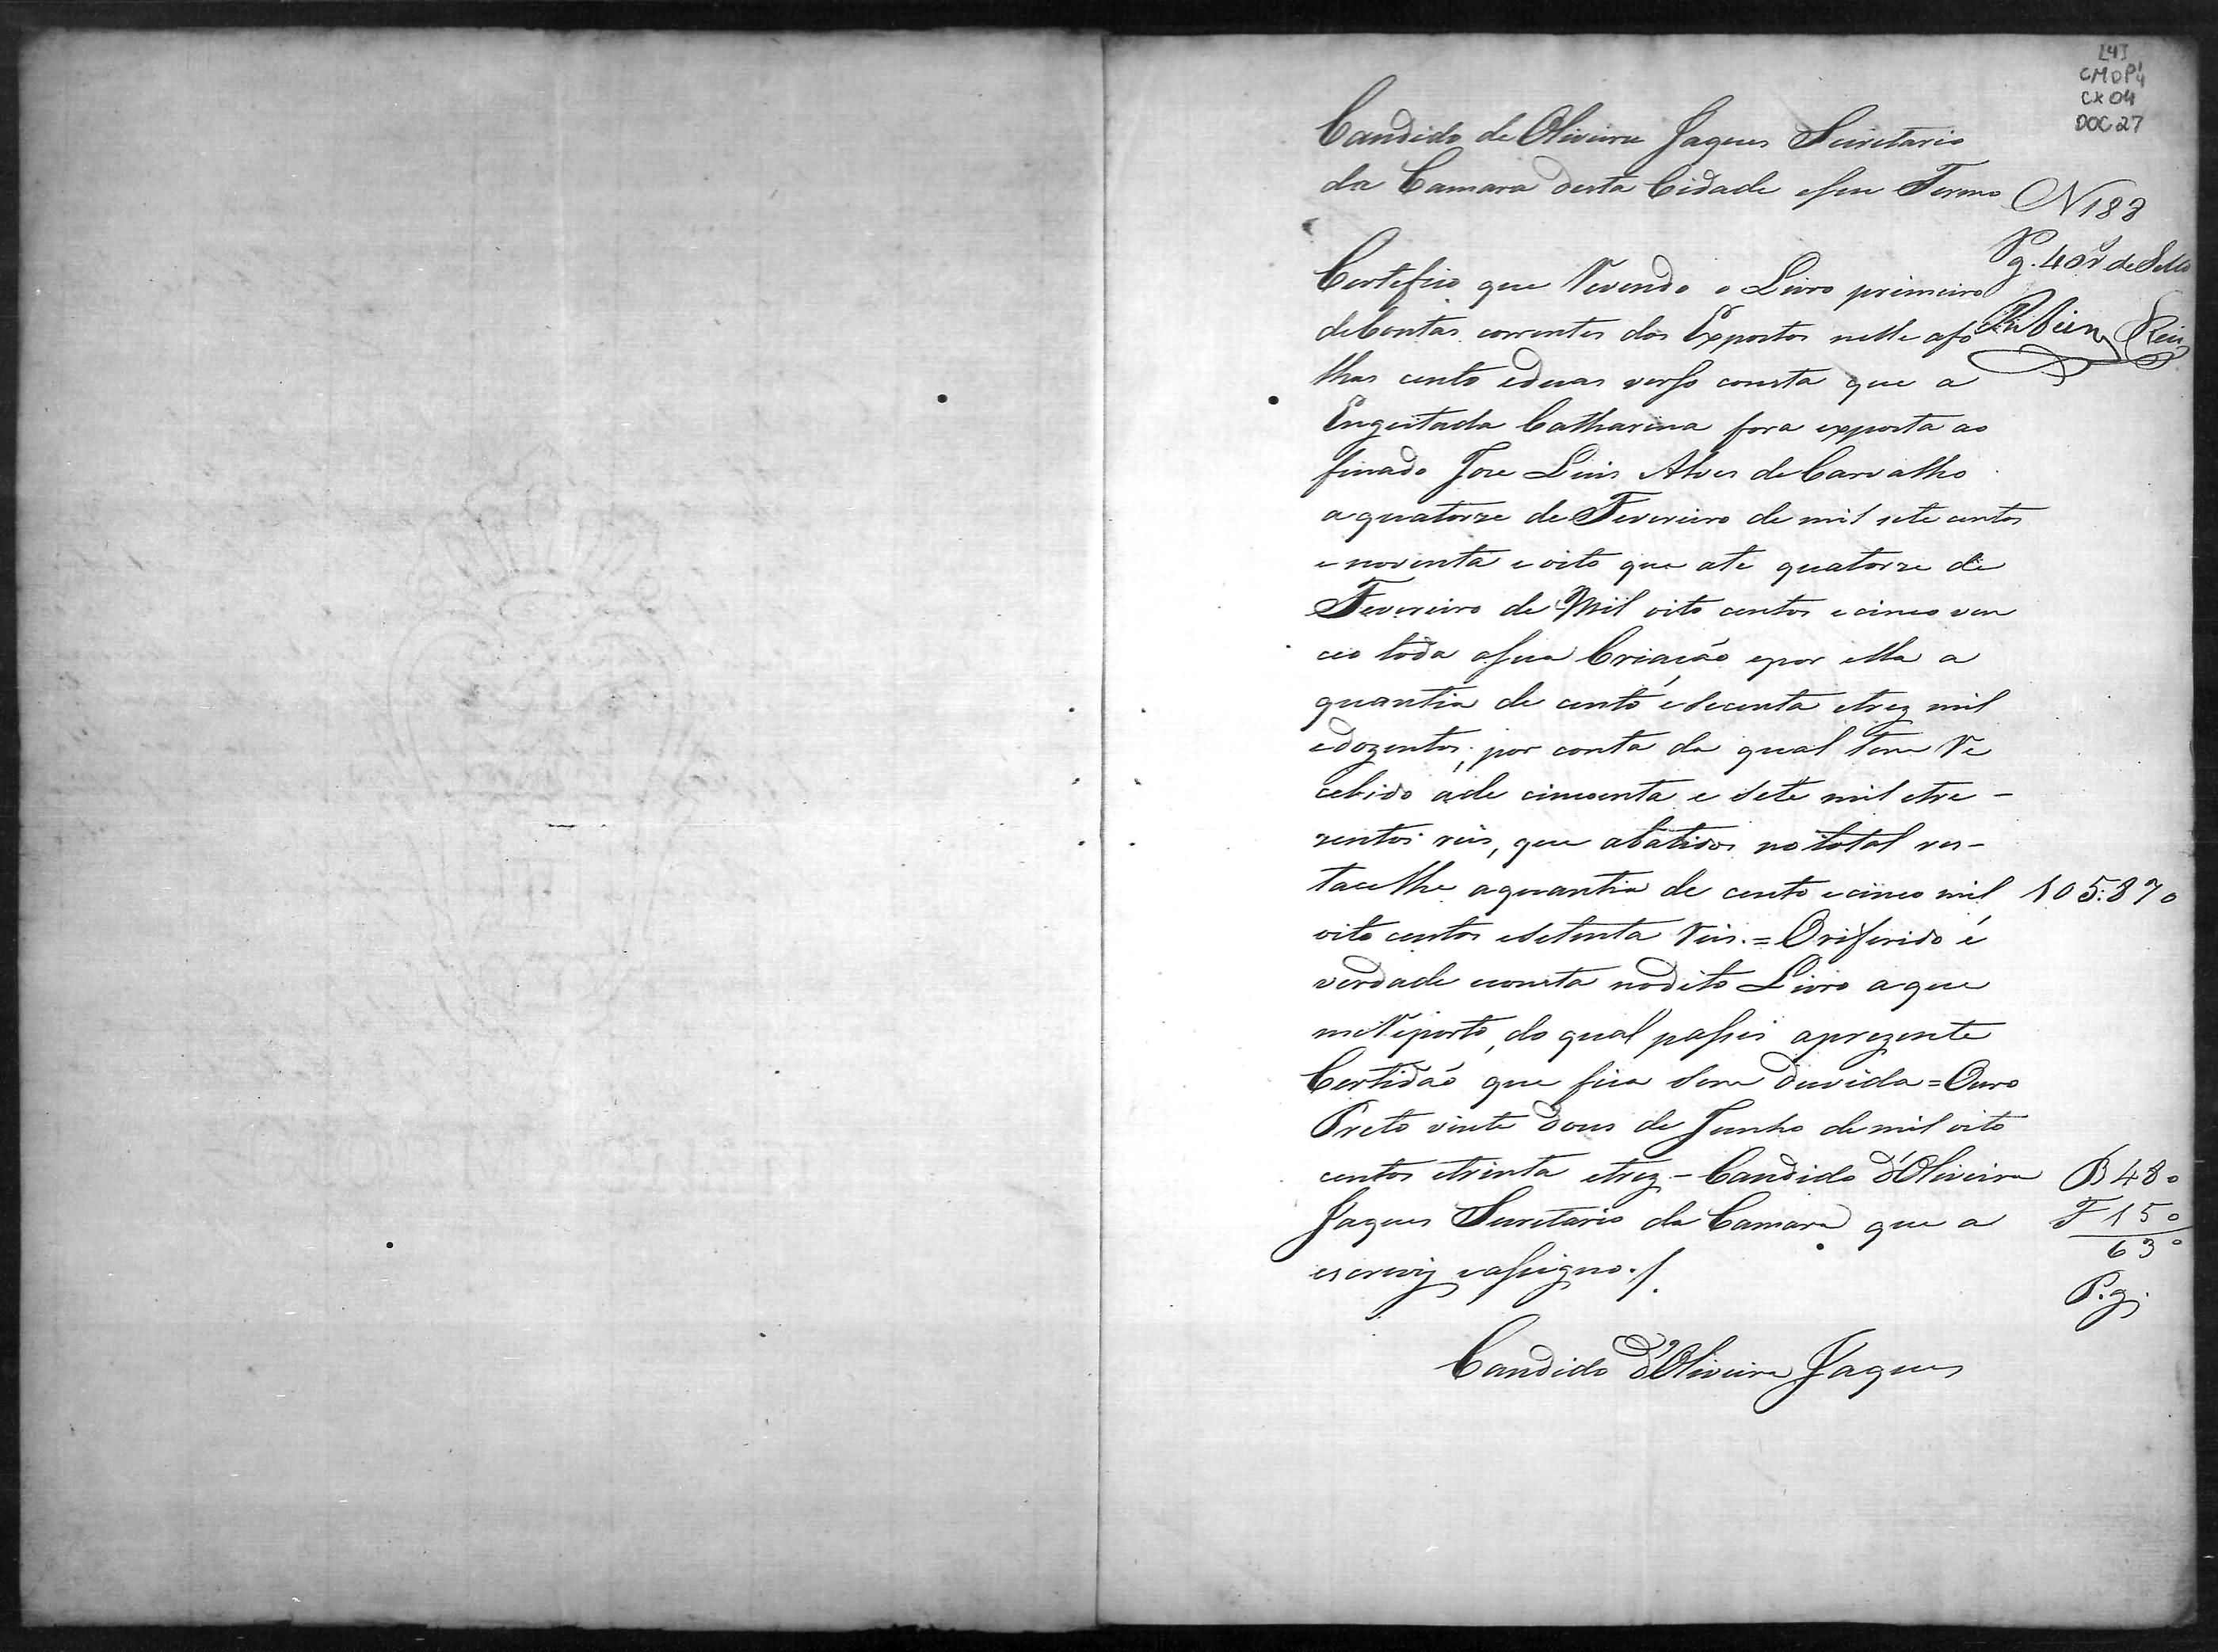 L4J
CMOP¹4
CX04
DOC27
Candido de Oliveira Jaques Secretario
da Camara desta Cidade eseu Termo
N 188
Pg. 40 rs de Sello
Certefico que Revendo o Livro primeiro
deContas correntes dos Expostos nelle afo
Reis
lhas cento eduas verso consta que a
Engeitada Catharina fora exposta ao
finado Jose Luis Alves de Carvalho
a quatorze de Fevereiro de mil sete centos
e noventa e oito que ate quatorze de
Fevereiro de Mil oito centos e cinco ven
ceo toda asua Criação epor ella a
quantia de cento e secenta etrez mil
edozentos, por conta da qual tem Re
cebido ade cincoenta e sete mil etre-
zentos reis, que abatidos no total res-
tacelhe aquantia de cento ecinco mil 105:870
oito centos esetenta Reis.= Oriferido é
verdade econsta nodito Livro aque
meReporto, do qual passei aprezente
Certidão que fica sem duvida = Ouro
Preto vinte dous de Junho de mil oito
centos etrinta etrez - Candido d'Oliveira
Jaques Secretario da Camara que a
escreviy eassigno./.
B 480
F 150
630
P.g.
Candido d'Oliveira Jaques